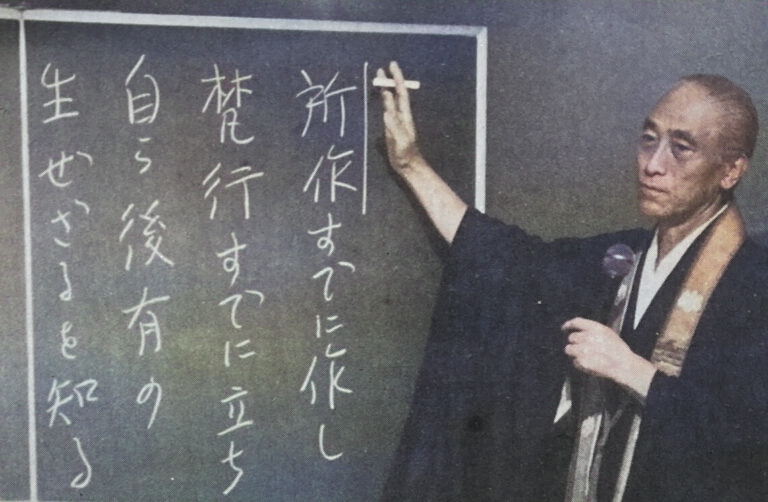 所作すでに作し
梵行すでに立ち
自ら後有の
生せざるを知る